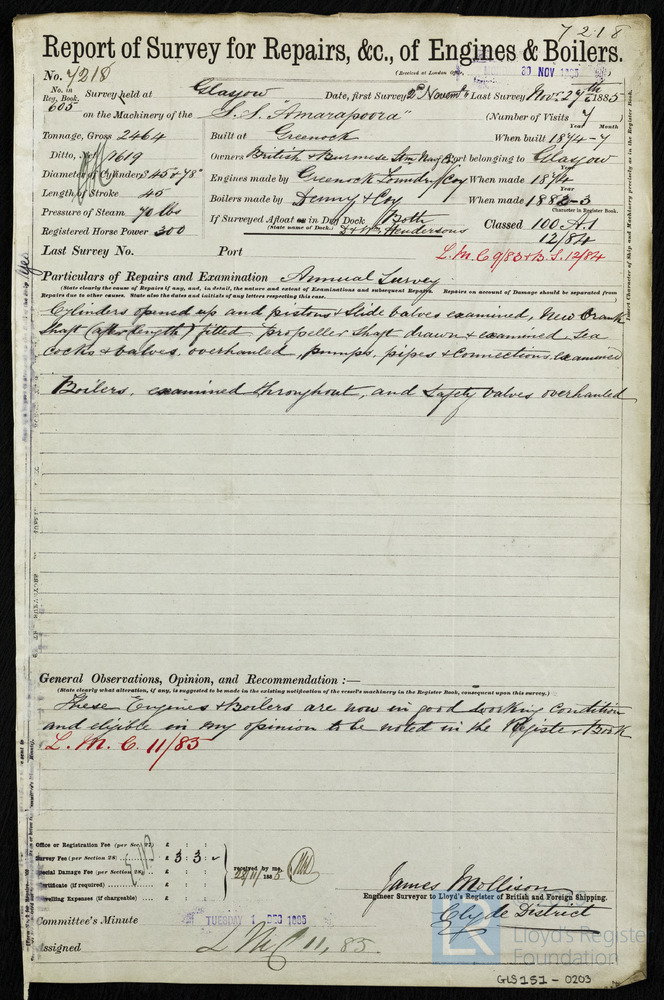 7218
Report of Survey for Repairs, &c., of Engines & Boilers.
No. 7218 (Received at London Office 30 NOV 1885)
No. in Reg. Book. 605 Survey held at Glasgow Date, first Survey 2nd Novemr Last Survey Novr 27th 1885
on the Machinery of the S.S. "Amarapoora" (Number of Visits 7)
Year Month
Tonnage, Gross 2464 Built at Greenock When built 1874-7
Ditto, Net 1619 Owners British & Burmese Stm Nav Co Port belonging to Glasgow
Year
Diameter of Cylinders 45 & 78" Engines made by Greenock Foundry Coy When made 1874
Year
Length of Stroke 45 Boilers made by Denny & Coy When made 1882-3
Character in Register Book.
Pressure of Steam 70 lbs If Surveyed Afloat or in Dry Dock Both Classed 100 A.1
(State name of Dock.) D & W Hendersons 12/84
Registered Horse Power 300
Last Survey No. Port L.M.C 9/83 & B.S. 12/84
Particulars of Repairs and Examination Annual Survey
(State clearly the cause of Repairs if any, and, in detail, the nature and extent of Examinations and subsequent Repairs. Repairs on account of Damage should be separated from
Repairs due to other causes. State also the dates and initials of any letters respecting this case.
Cylinders opened up and pistons & Slide valves examined, New Crank
Shaft (after length) fitted propeller shaft drawn & examined, Sea
cocks & valves overhauled, pumps, pipes & connections, examined
Boilers, examined throughout, and safety valves overhauled
Insert Character of Ship and Machinery precisely as in the Register Book.
General Observations, Opinion, and Recommendation :—
(State clearly what alteration, if any, is suggested to be made in the existing notification of the vessel's machinery in the Register Book, consequent upon this survey.)
These Engines & Boilers are now in good working condition
and eligible in my opinion to be noted in the Register Book
L. M. C. 11/85
Office or Registration Fee (per Sec. 27) £ : :
Survey Fee (per Section 28) £ 3 : 3 :
Special Damage Fee (per Section 28) £ : : received by me, 28/11/1885
Certificate (if required) £ : :
Travelling Expenses (if chargeable) £ : :
James Mollison
Engineer Surveyor to Lloyd's Register of British and Foreign Shipping.
Clyde District
Committee's Minute TUESDAY 1 DEC 1885
Assigned L M C 11,85
LR
Lloyd's Register
Foundation
GLS151-0203